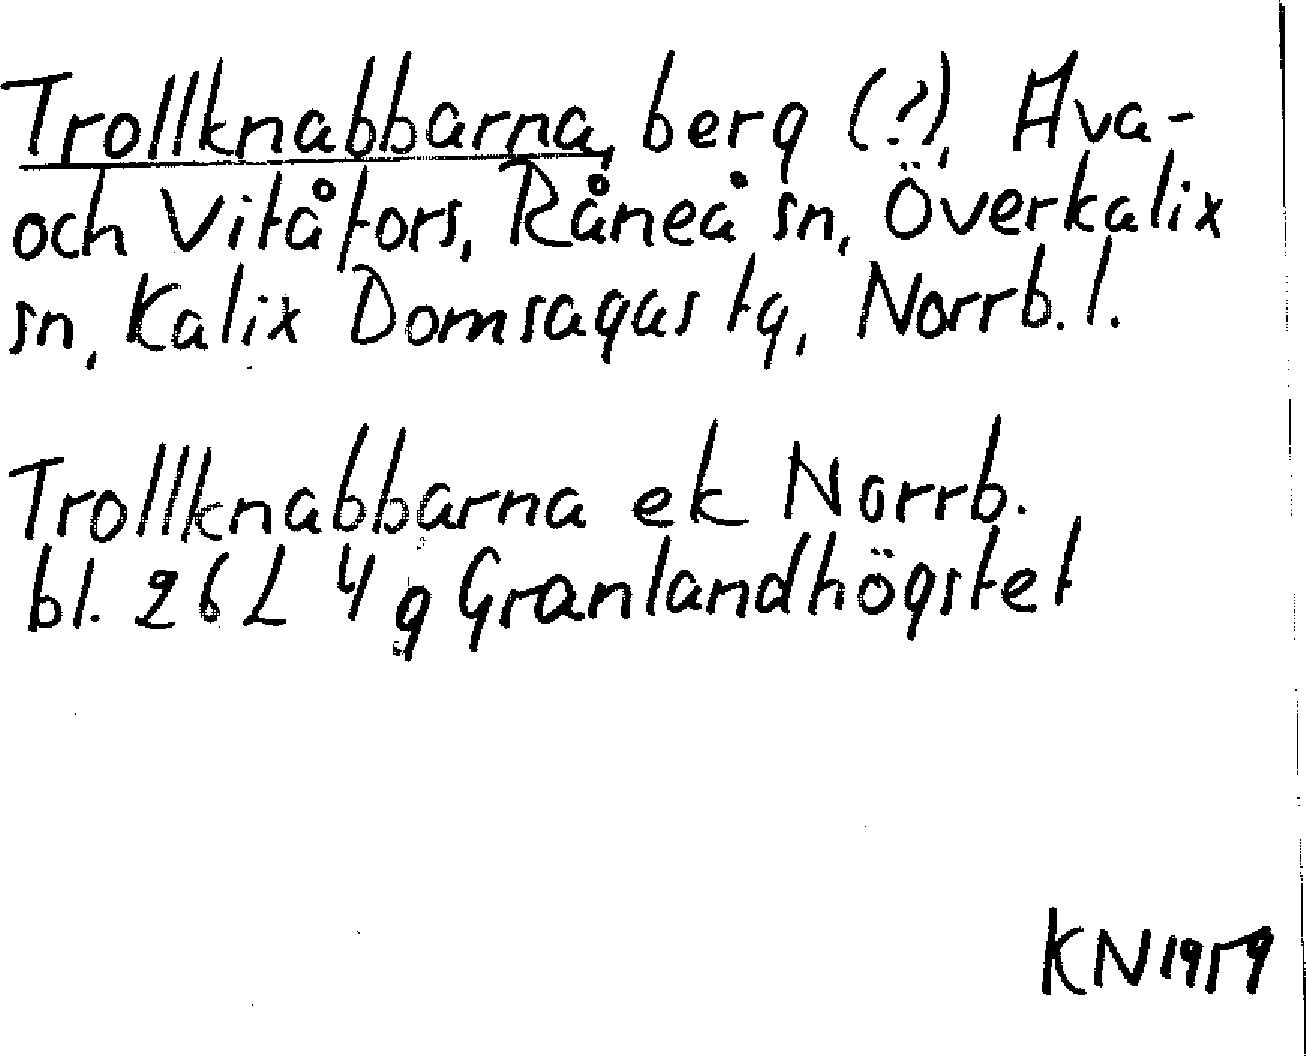 Trollknabbarna, berg (?), Ava-
och Vitåfors, Råneå sn, Överkalix
sn, Kalix Domsagas tg, Norrb. l.
Trollknabbarna ek Norrb.
bl. 26 L 4 g Granlandhögstet
KN 1959